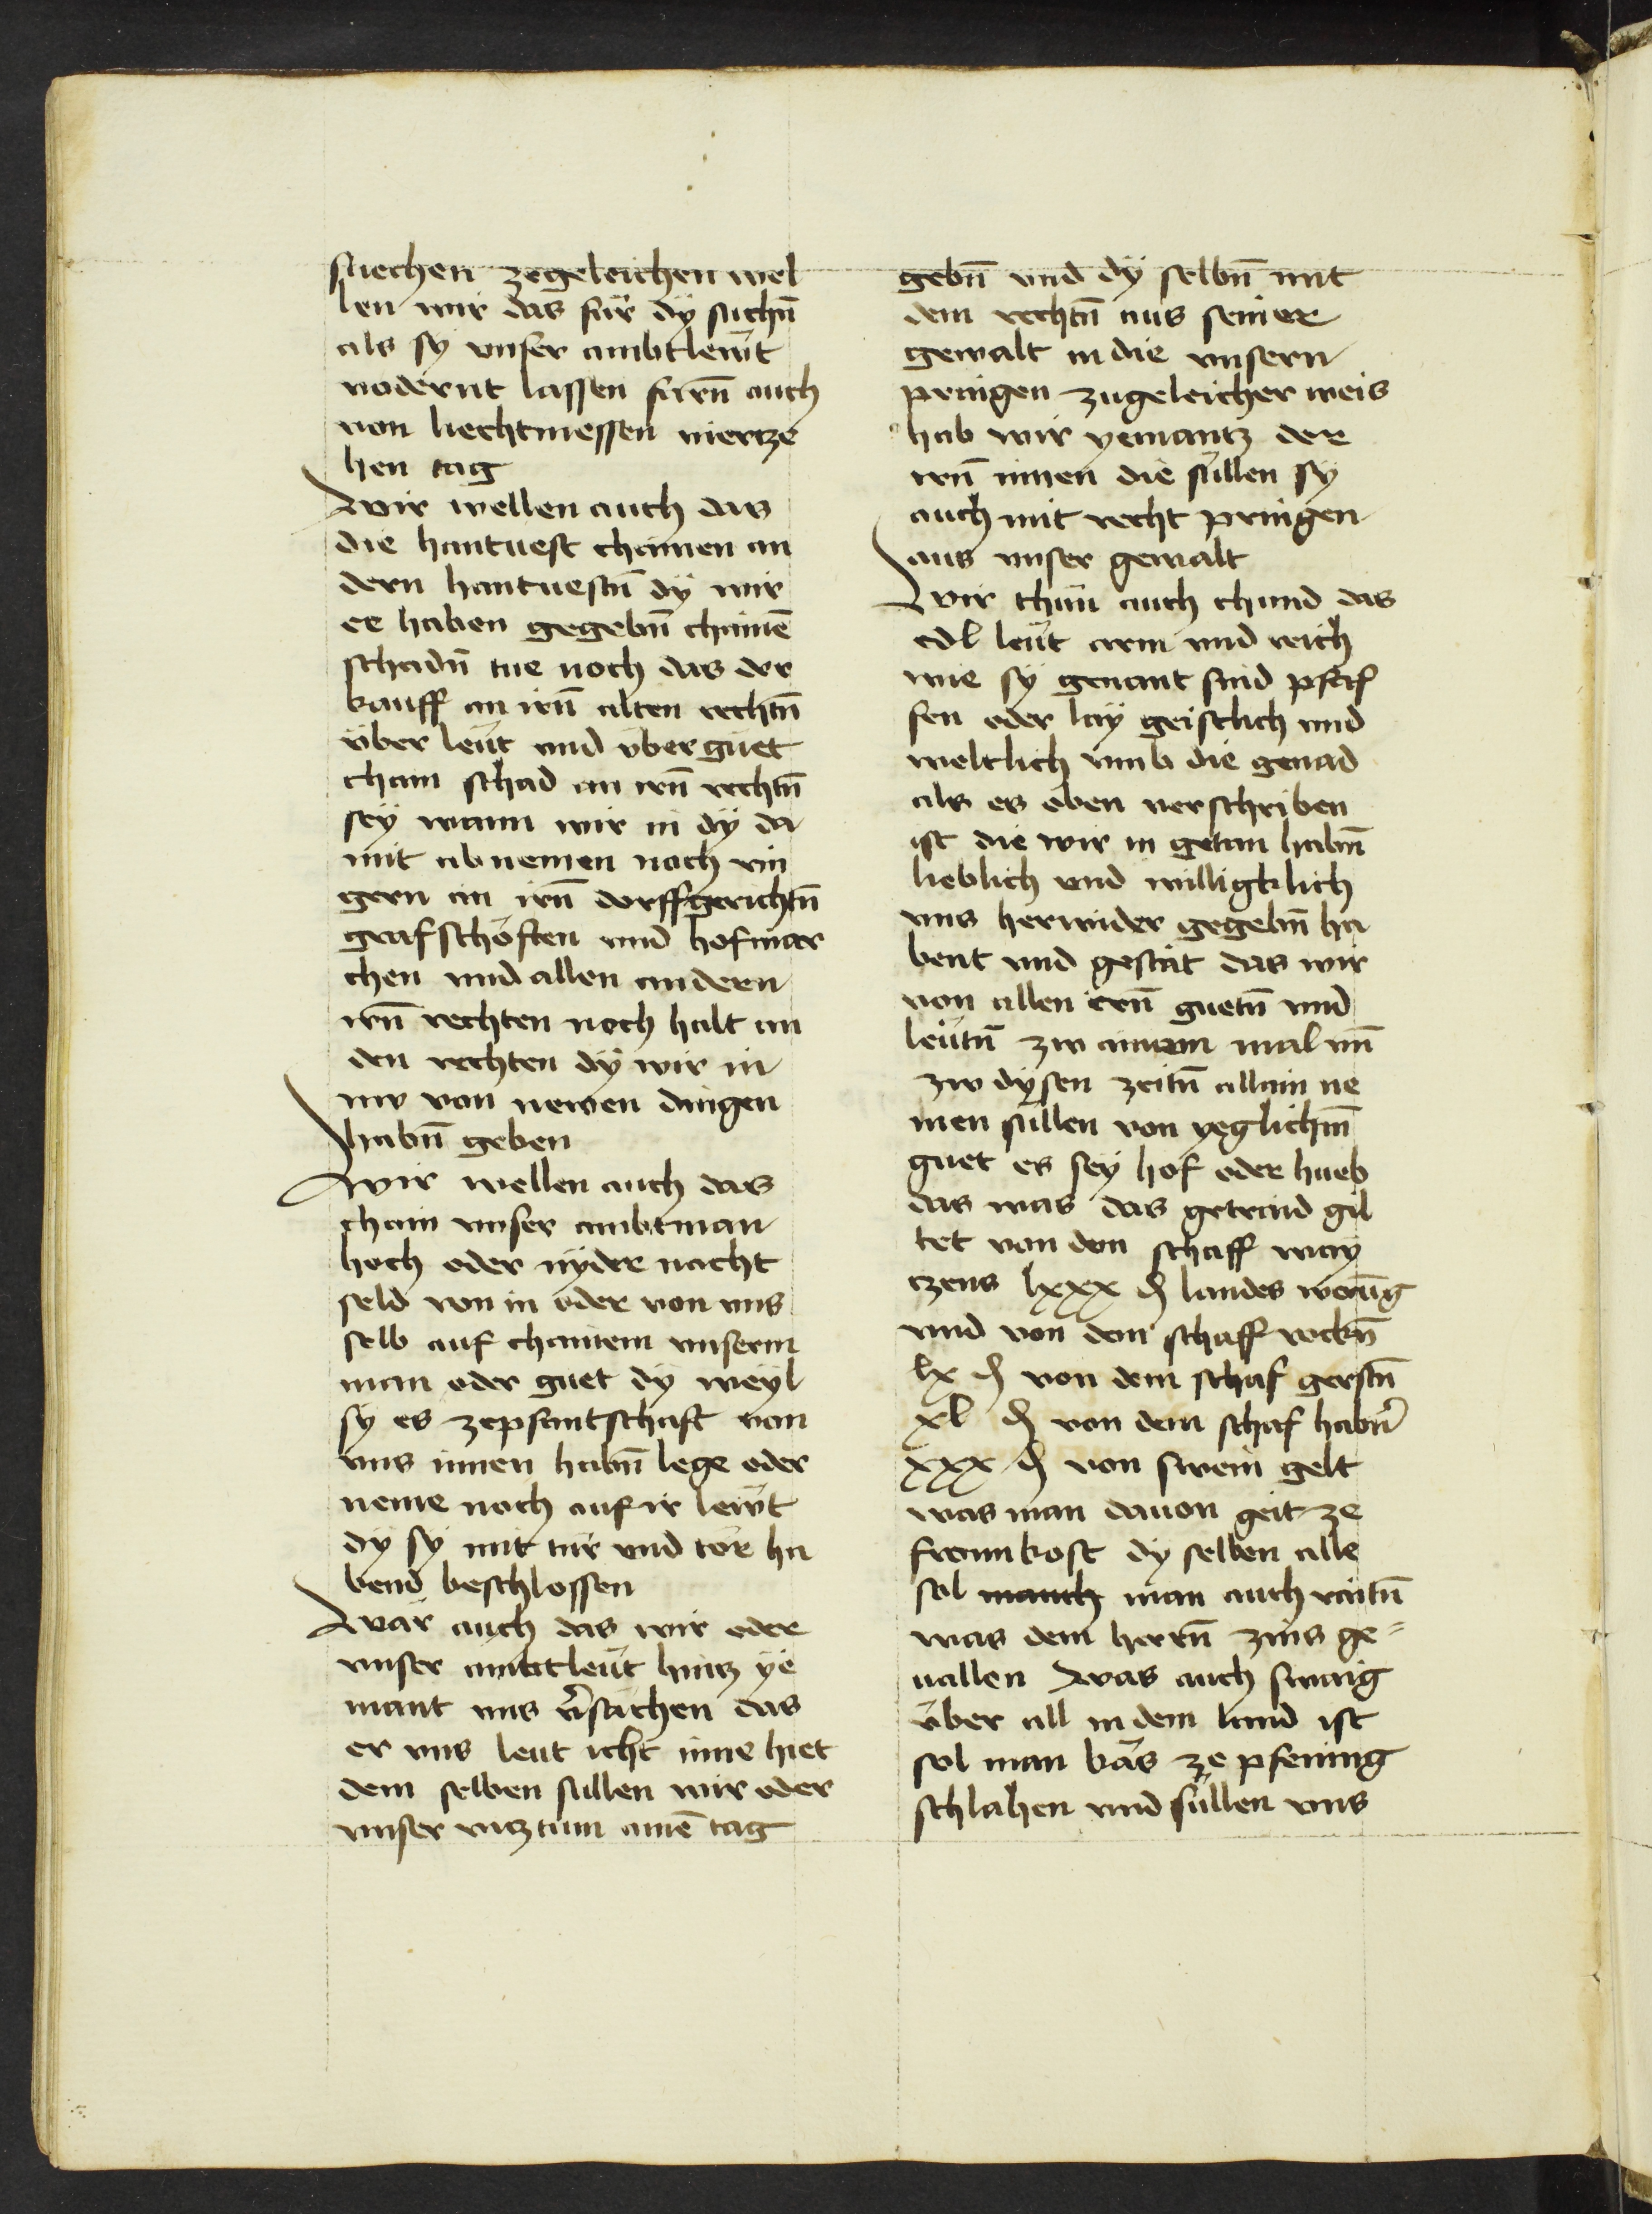 suechen zegeleichen wel
len wir das für dÿ suchn̄
als sÿ vnser ambtlewt
vodernt lassen farn̄ auch
von liechtmessen viertze
hen tag
Wir wellen auch das
die hantuest chainen an
dern hantuestn̄ dÿ wir
ee haben gegebn̄ chainē
schadn̄ tue noch das der
kauff an irn̄ alten rechtn̄
über leüt vnd über guet
chain schad an irn̄ rechtn̄
seÿ wann wir in dÿ da
mit ab nemen noch rin
gern an irn̄ dorffgerichtn̄
grafschöften vnd hofmar
chen vnd allen andern
irn̄ rechten noch halt an
den rechten dÿ wir in
nw von newen dingen
habn̄ geben
Wir wellen auch das
chain vnser ambtman
hoch oder nÿder nacht
seld von in oder von vns
selb auf chainem vnserm
man oder guet dÿ weÿl
sÿ es zepfantschaft von
vns innen habn̄ lege oder
neme noch auf ir lewt
dÿ sÿ mit tür vnd tör ha
bend beschlossen
Wär auch das wir oder
vnser ambtleüt hintz ÿe
mant vns v̄sächen das
er vns leut icht inne hiet
dem selben süllen wir oder
vnser vitztum ainē tag
gebn̄ vnd dÿ selbn̄ mit
dem rechtn̄ aus seiner
gewalt in die vnsern
pringen zugeleicher weis
hab wir yemantz der
irn̄ innen die süllen sÿ
auch mit recht pringen
aus vnser gewalt
Wir thün auch chund das
edl leüt arm vnd reich
wie sÿ genant sind pfaf
fen oder laÿ geistlich vnd
weltlich vmb die genad
als es oben verschriben
ist die wir in getan habn̄
lieblich vnd willigklich
vns herwider gegebn̄ ha
bent vnd gestät das wir
von allen ern̄ guetn̄ vnd
leütn̄ zw ainem mal vn̄
zw dÿsen zeitn̄ allain ne
men süllen von yeglichm̄
guet es seÿ hof oder hueb
das was das getraid gil
tet von dem schaff waÿ
tzens lxxx ₰ landes werūg
vnd von dem schaff rockn̄
lx ₰ von dem schaf gerstn̄
xl ₰ von dem schaf habn̄
xxx ₰ von swein gelt
was man dauon geit ze
fronkost dÿ selben alle
sol mauch man auch raitn̄
was dem herrn̄ zins ge=
uallen Was auch swaig
über all in dem land ist
sol man käs ze pfening
schlahen vnd süllen vns